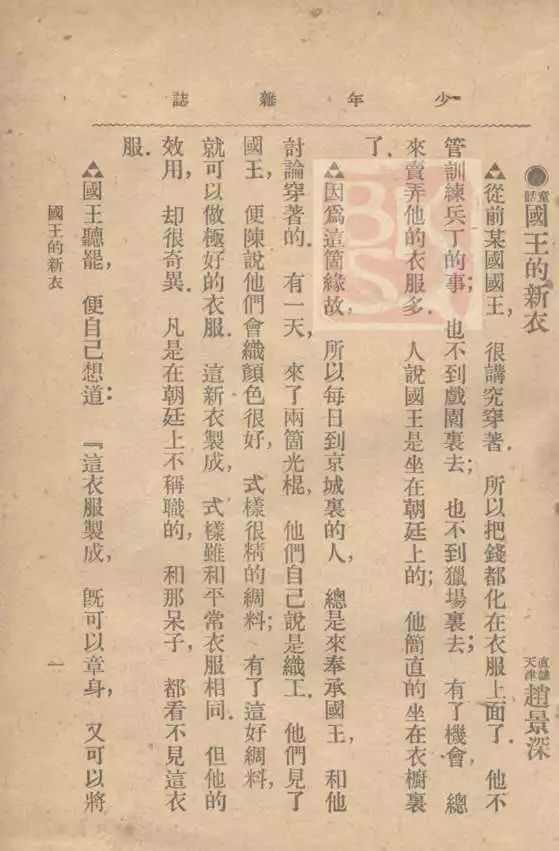 少年雜誌
●童話 國王的新衣
直隸天津 趙景深
▲從前某國國王，很講究穿著．所以把錢都化在衣服上面了．他不
管訓練兵丁的事；也不到戲園裏去；也不到獵場裏去；有了機會，總
來賣弄他的衣服多．人說國王是坐在朝廷上的；他簡直的坐在衣櫥裏
了．
▲因爲這箇緣故，所以每日到京城裏的人，總是來奉承國王，和他
討論穿著的．有一天，來了兩箇光棍，他們自己說是織工．他們見了
國王，便陳說他們會織顏色很好，式樣很精的綢料；有了這好綢料，
就可以做極好的衣服．這新衣製成，式樣雖和平常衣服相同．但他的
效用，却很奇異．凡是在朝廷上不稱職的，和那呆子，都看不見這衣
服．
▲國王聽罷，便自己想道：『這衣服製成，旣可以章身，又可以將
國王的新衣
一